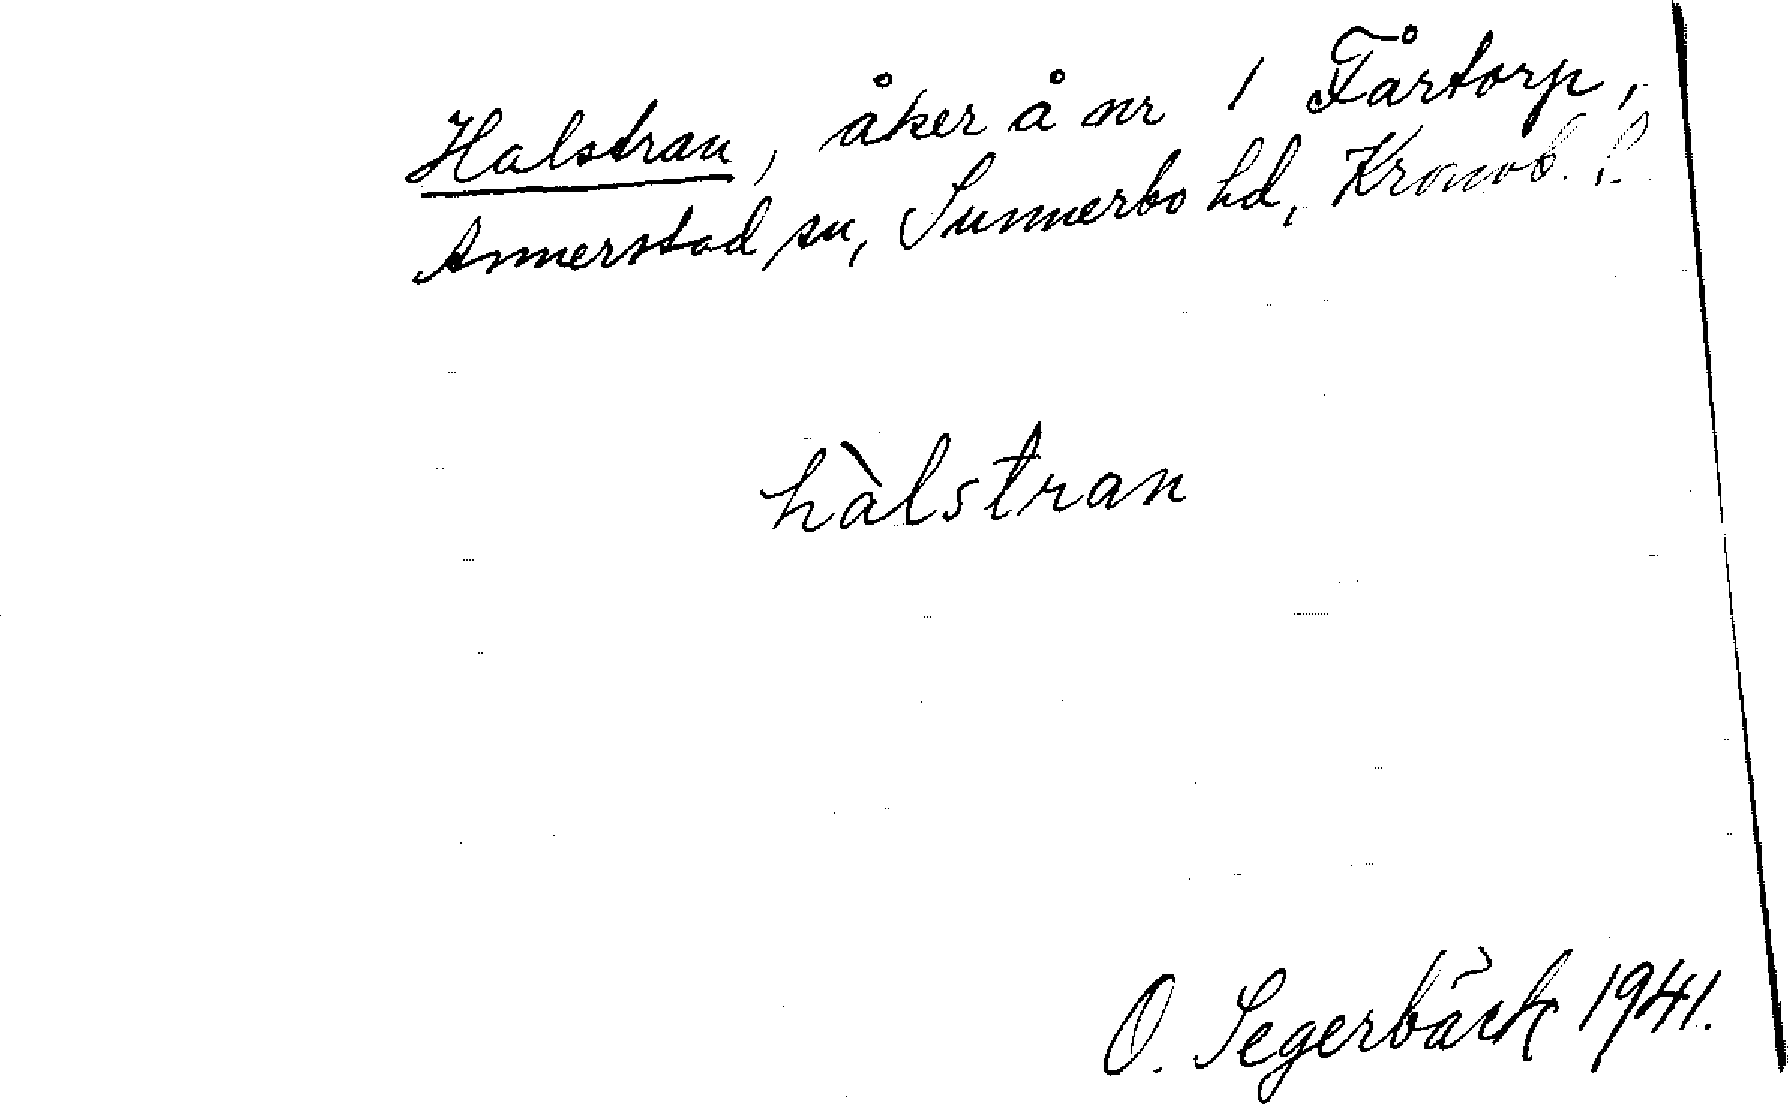 Halstran, åker å nr 1 Fårtorp,
Annerstad sn, Sunnerbo hd, Kronob. l.
hàlstran
O. Segerbäck 1941.